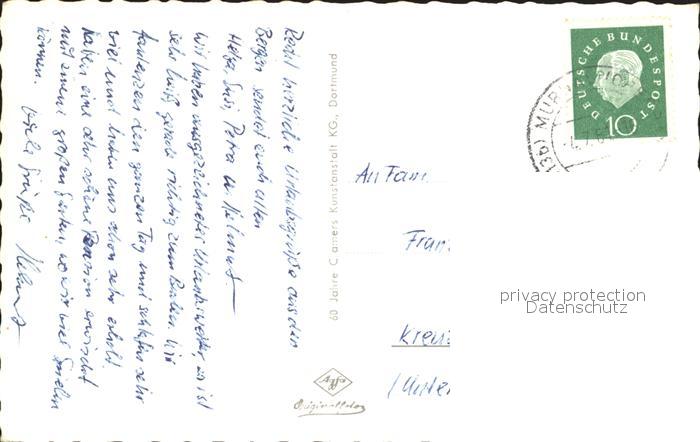 Recht herzliche Urlaubsgrüße aus den
Bergen sendet euch allen
Helga, Susi, Petra u. Helmut
Wir haben ausgezeichnetes Urlaubswetter, es ist
sehr heiß, gerade richtig zum Baden. Wir
faulenzen den ganzen Tag und schlafen sehr
viel und haben uns schon sehr erholt.
Haben eine sehr schöne Pension erwischt
mit einem großen Garten, wo wir viel spielen
können. Viele Grüße Helmut
60 Jahre Cramers Kunstanstalt KG., Dortmund
An Fam.
Fran
Kreuz
(Unter
Agfa
Originalfoto
DEUTSCHE BUNDESPOST
10
(13b) MURN
4.7.6
privacy protection
Datenschutz